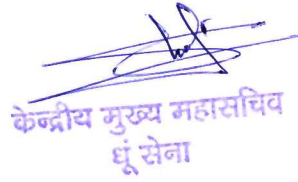 केन्द्रीय मुख्य महासचिव
धूं सेना